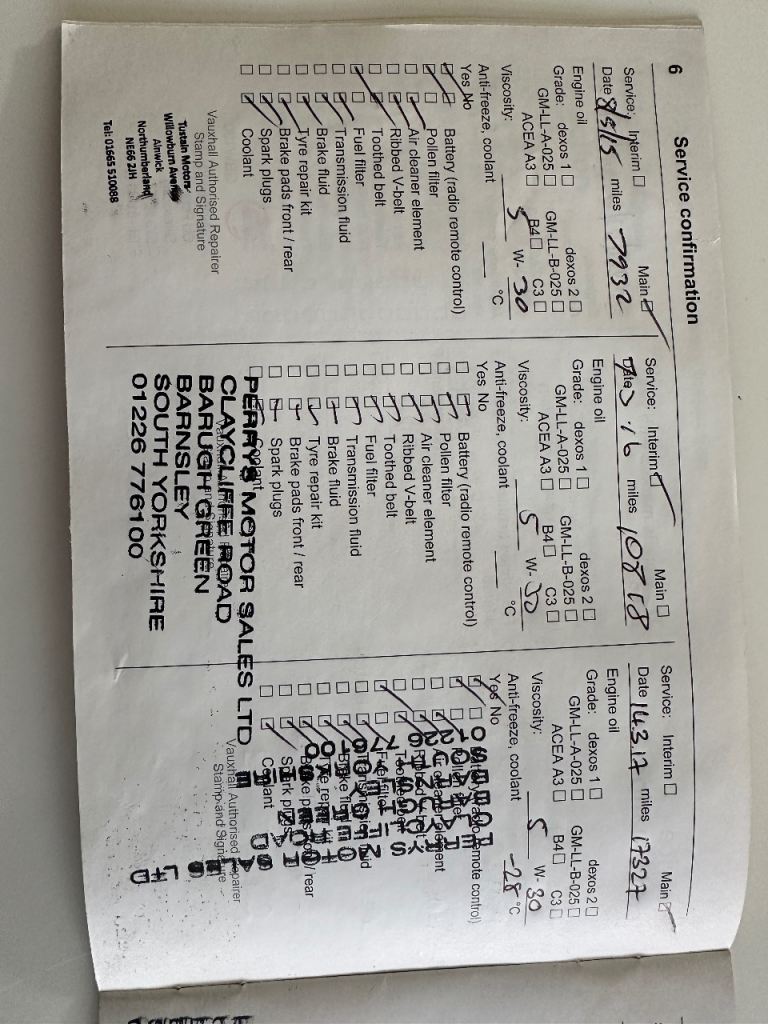 6
Service confirmation
Service: Interim ☐ Main ☑
Date 8/9/15 miles 7932
Engine oil
Grade: dexos 1 ☐ dexos 2 ☐
GM-LL-A-025 ☐ GM-LL-B-025 ☐
ACEA A3 ☐ B4 ☐ C3 ☐
Viscosity: 5 W- 30
Anti-freeze, coolant °C
Yes No
Battery (radio remote control)
Pollen filter
Air cleaner element
Ribbed V-belt
Toothed belt
Fuel filter
Transmission fluid
Brake fluid
Tyre repair kit
Brake pads front / rear
Spark plugs
Coolant
Vauxhall Authorised Repairer
Stamp and Signature
Tustain Motors
Willowburn Avenue
Alnwick
Northumberland
NE66 2JH
Tel: 01665 510088
Service: Interim ☑ Main ☐
Date 16 miles 10818
Engine oil
Grade: dexos 1 ☐ dexos 2 ☐
GM-LL-A-025 ☐ GM-LL-B-025 ☐
ACEA A3 ☐ B4 ☐ C3 ☐
Viscosity: 5 W- 30
Anti-freeze, coolant °C
Yes No
Battery (radio remote control)
Pollen filter
Air cleaner element
Ribbed V-belt
Toothed belt
Fuel filter
Transmission fluid
Brake fluid
Tyre repair kit
Brake pads front / rear
Spark plugs
Coolant
PERRYS MOTOR SALES LTD
CLAYCLIFFE ROAD
BARUGH GREEN
BARNSLEY
SOUTH YORKSHIRE
01226 776100
Service: Interim ☐ Main ☑
Date 14.3.17 miles 17327
Engine oil
Grade: dexos 1 ☐ dexos 2 ☐
GM-LL-A-025 ☐ GM-LL-B-025 ☐
ACEA A3 ☐ B4 ☐ C3 ☐
Viscosity: 5 W- 30
Anti-freeze, coolant -28 °C
Yes No
Battery (radio remote control)
Pollen filter
Air cleaner element
Ribbed V-belt
Toothed belt
Fuel filter
Transmission fluid
Brake fluid
Tyre repair kit
Brake pads front / rear
Spark plugs
Coolant
Vauxhall Authorised Repairer
Stamp and Signature